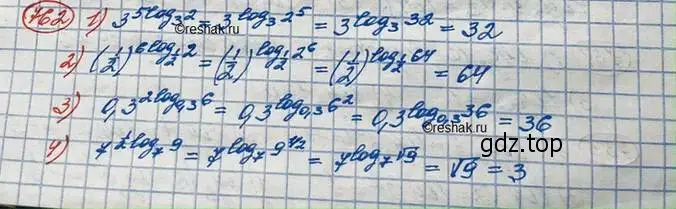 762 1) 3^{5log_3 2} = 3^{log_3 2^5} = 3^{log_3 32} = 32
©reshak.ru
2) (1/2)^{6log_{1/2} 2} = (1/2)^{log_{1/2} 2^6} = (1/2)^{log_{1/2} 64} = 64
3) 0,3^{2log_{0,3} 6} = 0,3^{log_{0,3} 6^2} = 0,3^{log_{0,3} 36} = 36
©reshak.ru
gdz.top
4) 7^{1/2 log_7 9} = 7^{log_7 9^{1/2}} = 7^{log_7 √9} = √9 = 3